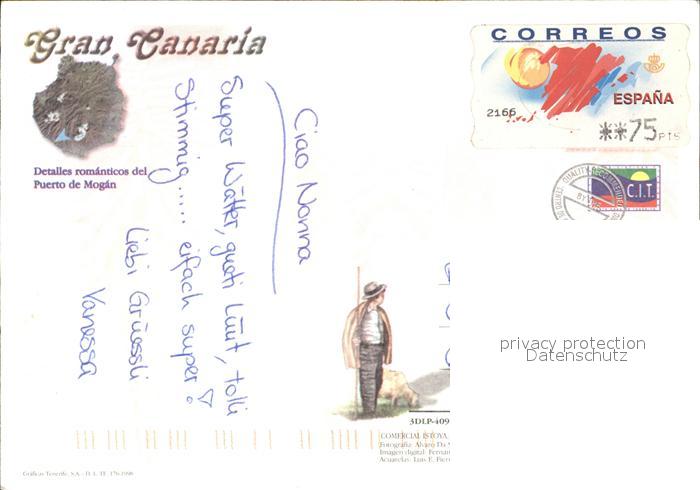 Gran Canaria
Detalles románticos del
Puerto de Mogán
Ciao Nonna
Super Wätter, gueti Lüüt, tolli
Stimmig..... eifach super!
Liebi Grüessli
Vanessa
CORREOS
2166
ESPAÑA
**75 PTS
QUALITY
C.I.T.
privacy protection
Datenschutz
3DLP-409
COMERCIAL ISTOYA,
Fotografía: Alvaro Da
Imagen digital: Fernan
Acuarelas: Luis E. Fier
Gráficas Tenerife, S.A. - D. L. TF. 176-1998